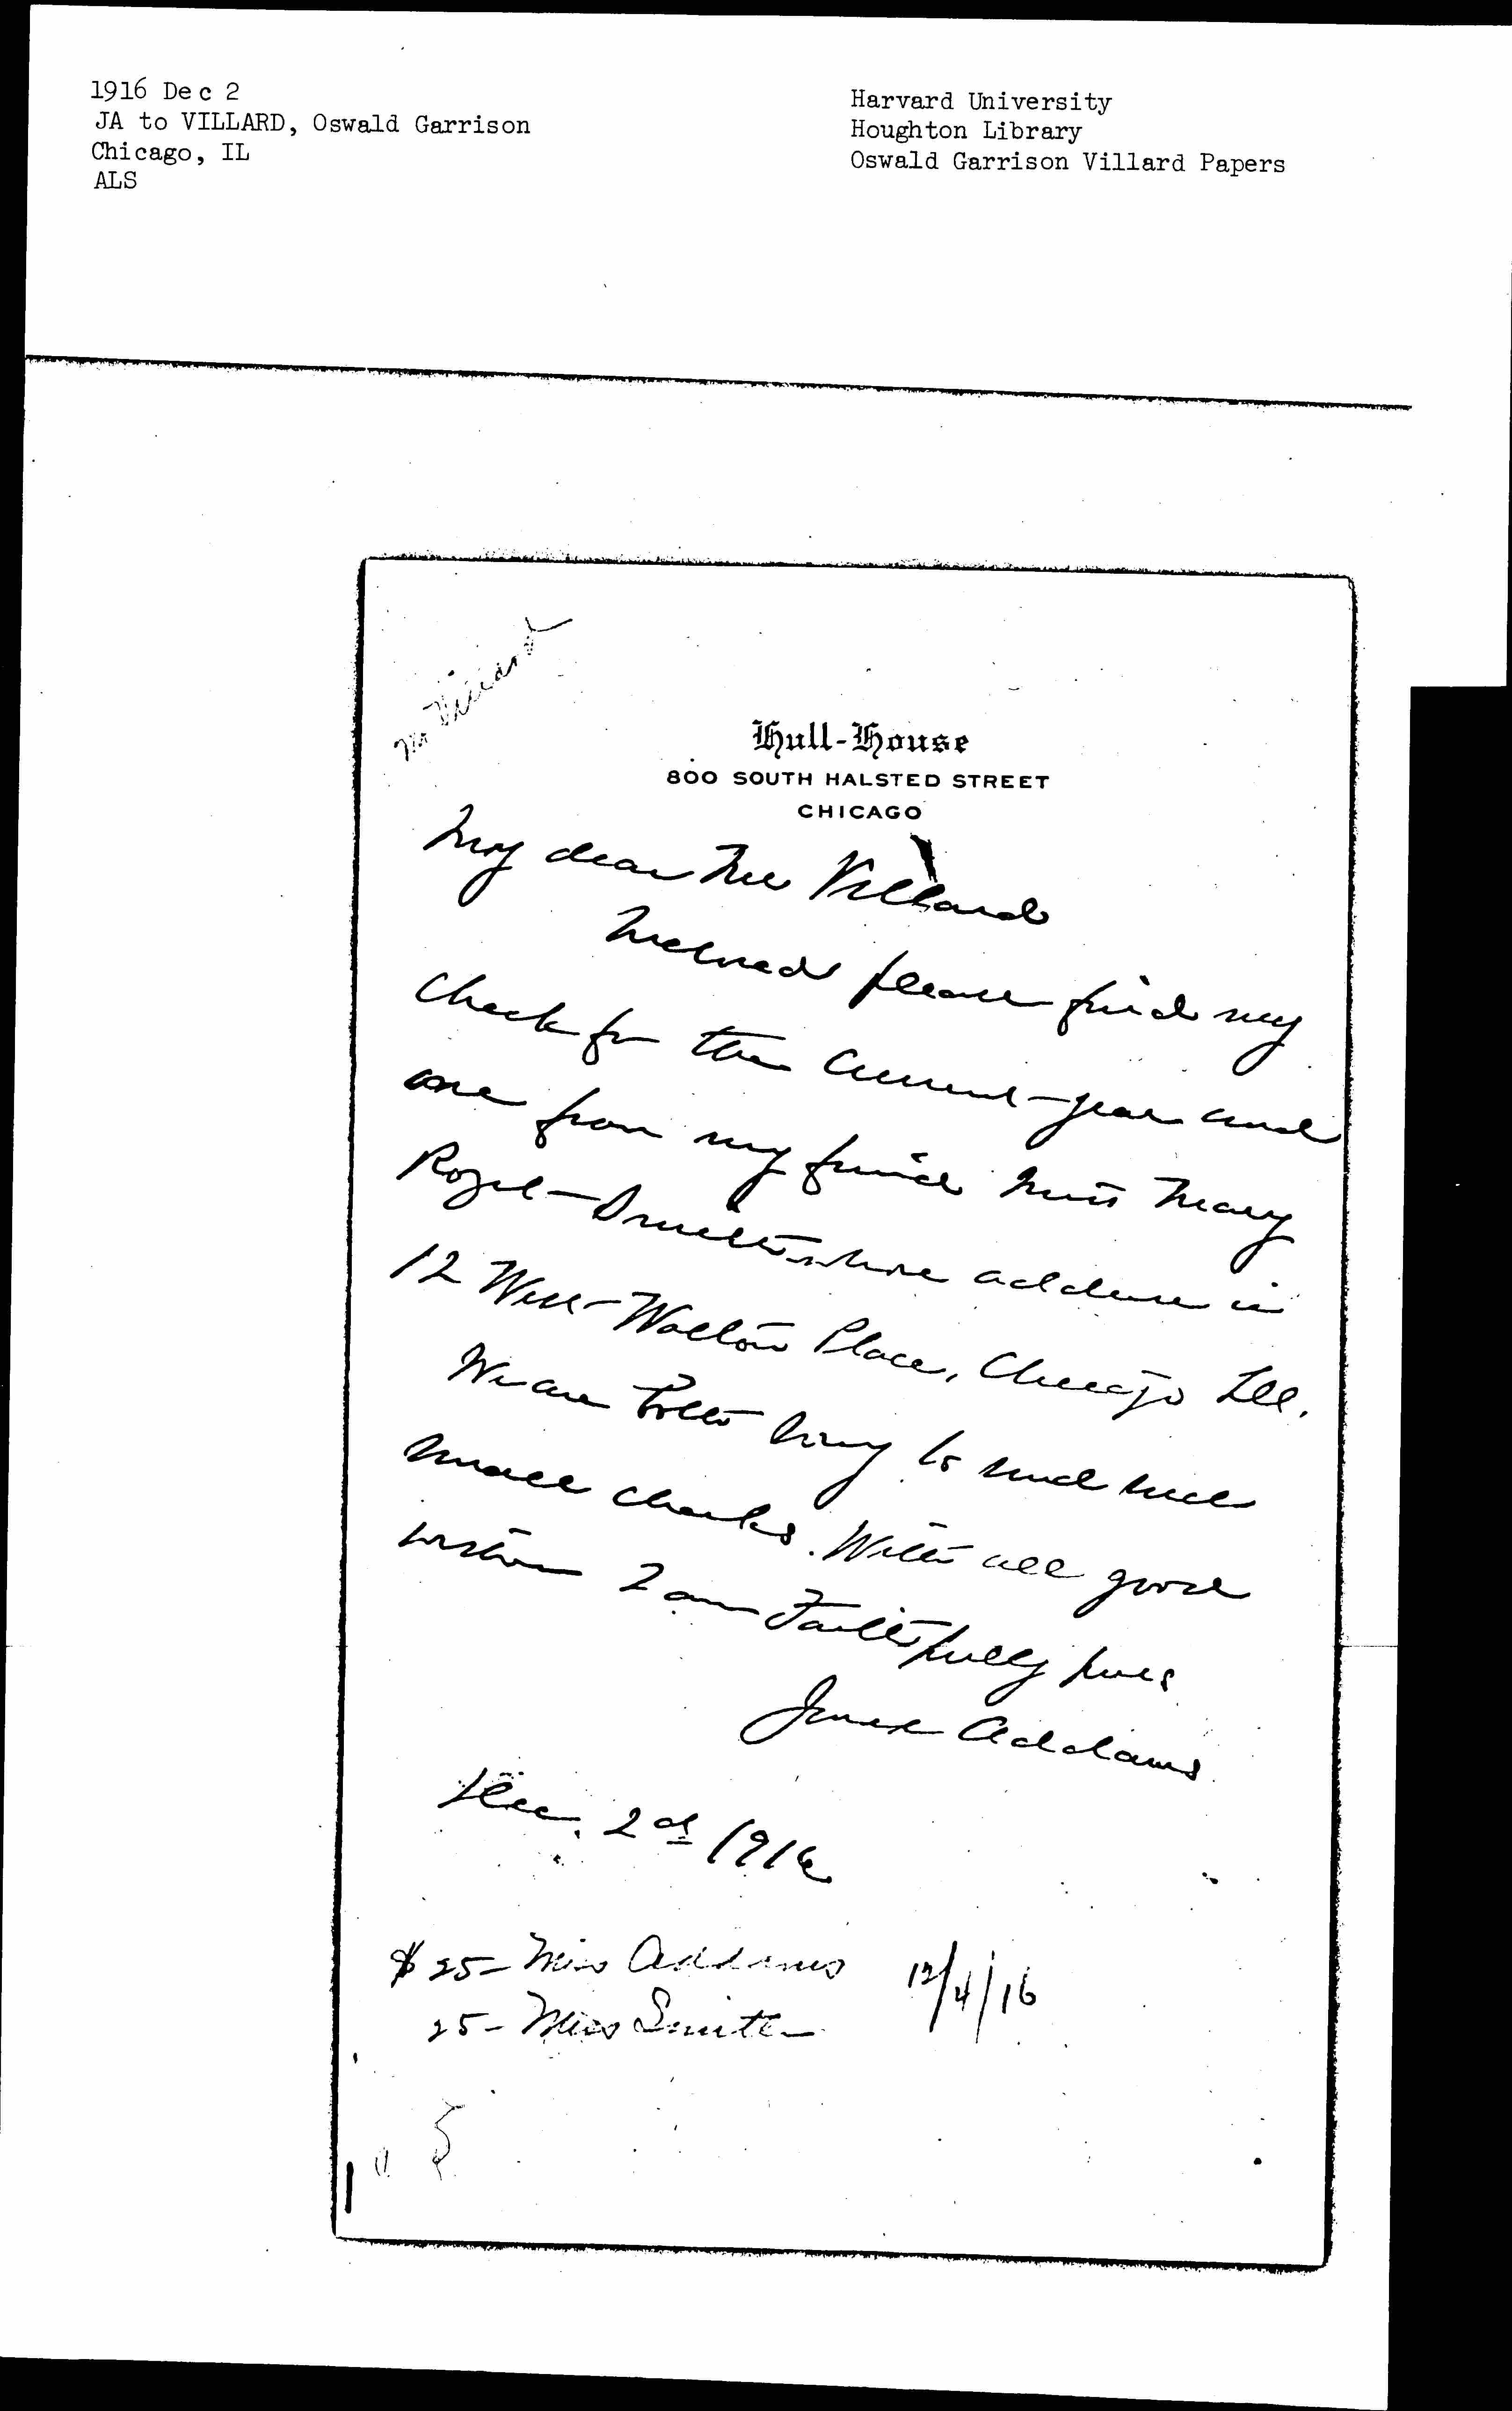 1916 Dec 2
JA to VILLARD, Oswald Garrison
Chicago, IL
ALS
Harvard University
Houghton Library
Oswald Garrison Villard Papers
Mr Villard
Hull-House
800 SOUTH HALSTED STREET
CHICAGO
My dear Mr Villard
Inclosed please find my
check for the current year and
one from my friend Miss Mary
Rozet Smith whose address is
12 West Walton Place, Chicago Ill.
We are both sorry to send such
small checks. With all good
wishes I am Faithfully yours
Jane Addams
Dec. 2d 1916
$25- Miss Addams 12/4/16
25- Miss Smith